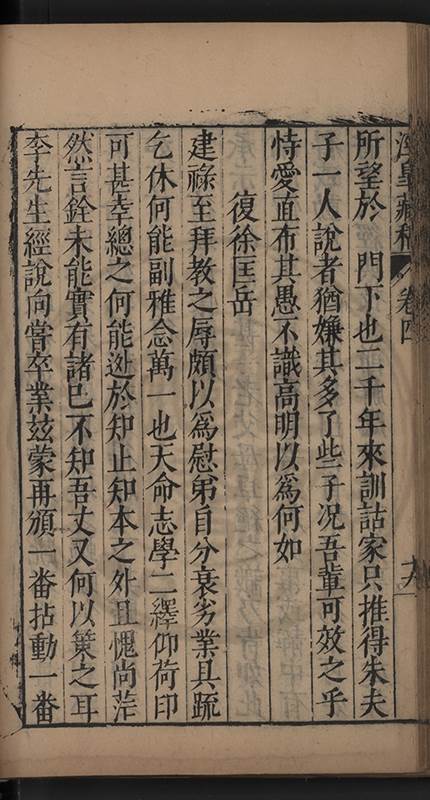 涇皋藏稿 卷四
所望於 門下也二千年來訓詁家只推得朱夫
子一人說者猶嫌其多了些子况吾輩可效之乎
恃愛直布其愚不識高明以為何如
復徐匡岳
建祿至拜教之辱頗以為慰弟自分衰劣業具疏
乞休何能副雅念萬一也天命志學二繹仰荷印
可甚幸總之何能迯於知止知本之外且愧尚茫
然言銓未能實有諸己不知吾丈又何以策之耳
李先生經說向嘗卒業兹蒙再頒一番拈動一番